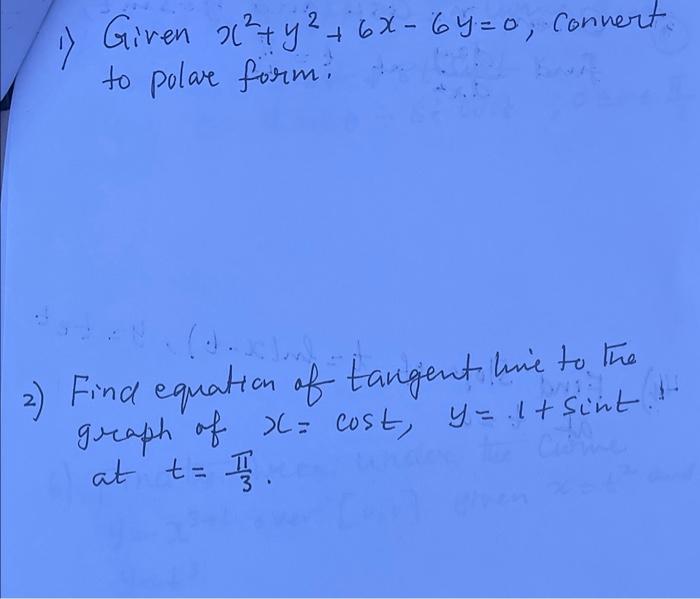 1) Given x²+y²+6x-6y=0, convert
to polar form.
2) Find equation of tangent line to the
graph of x= cost, y= 1+sint.
at t= π/3.